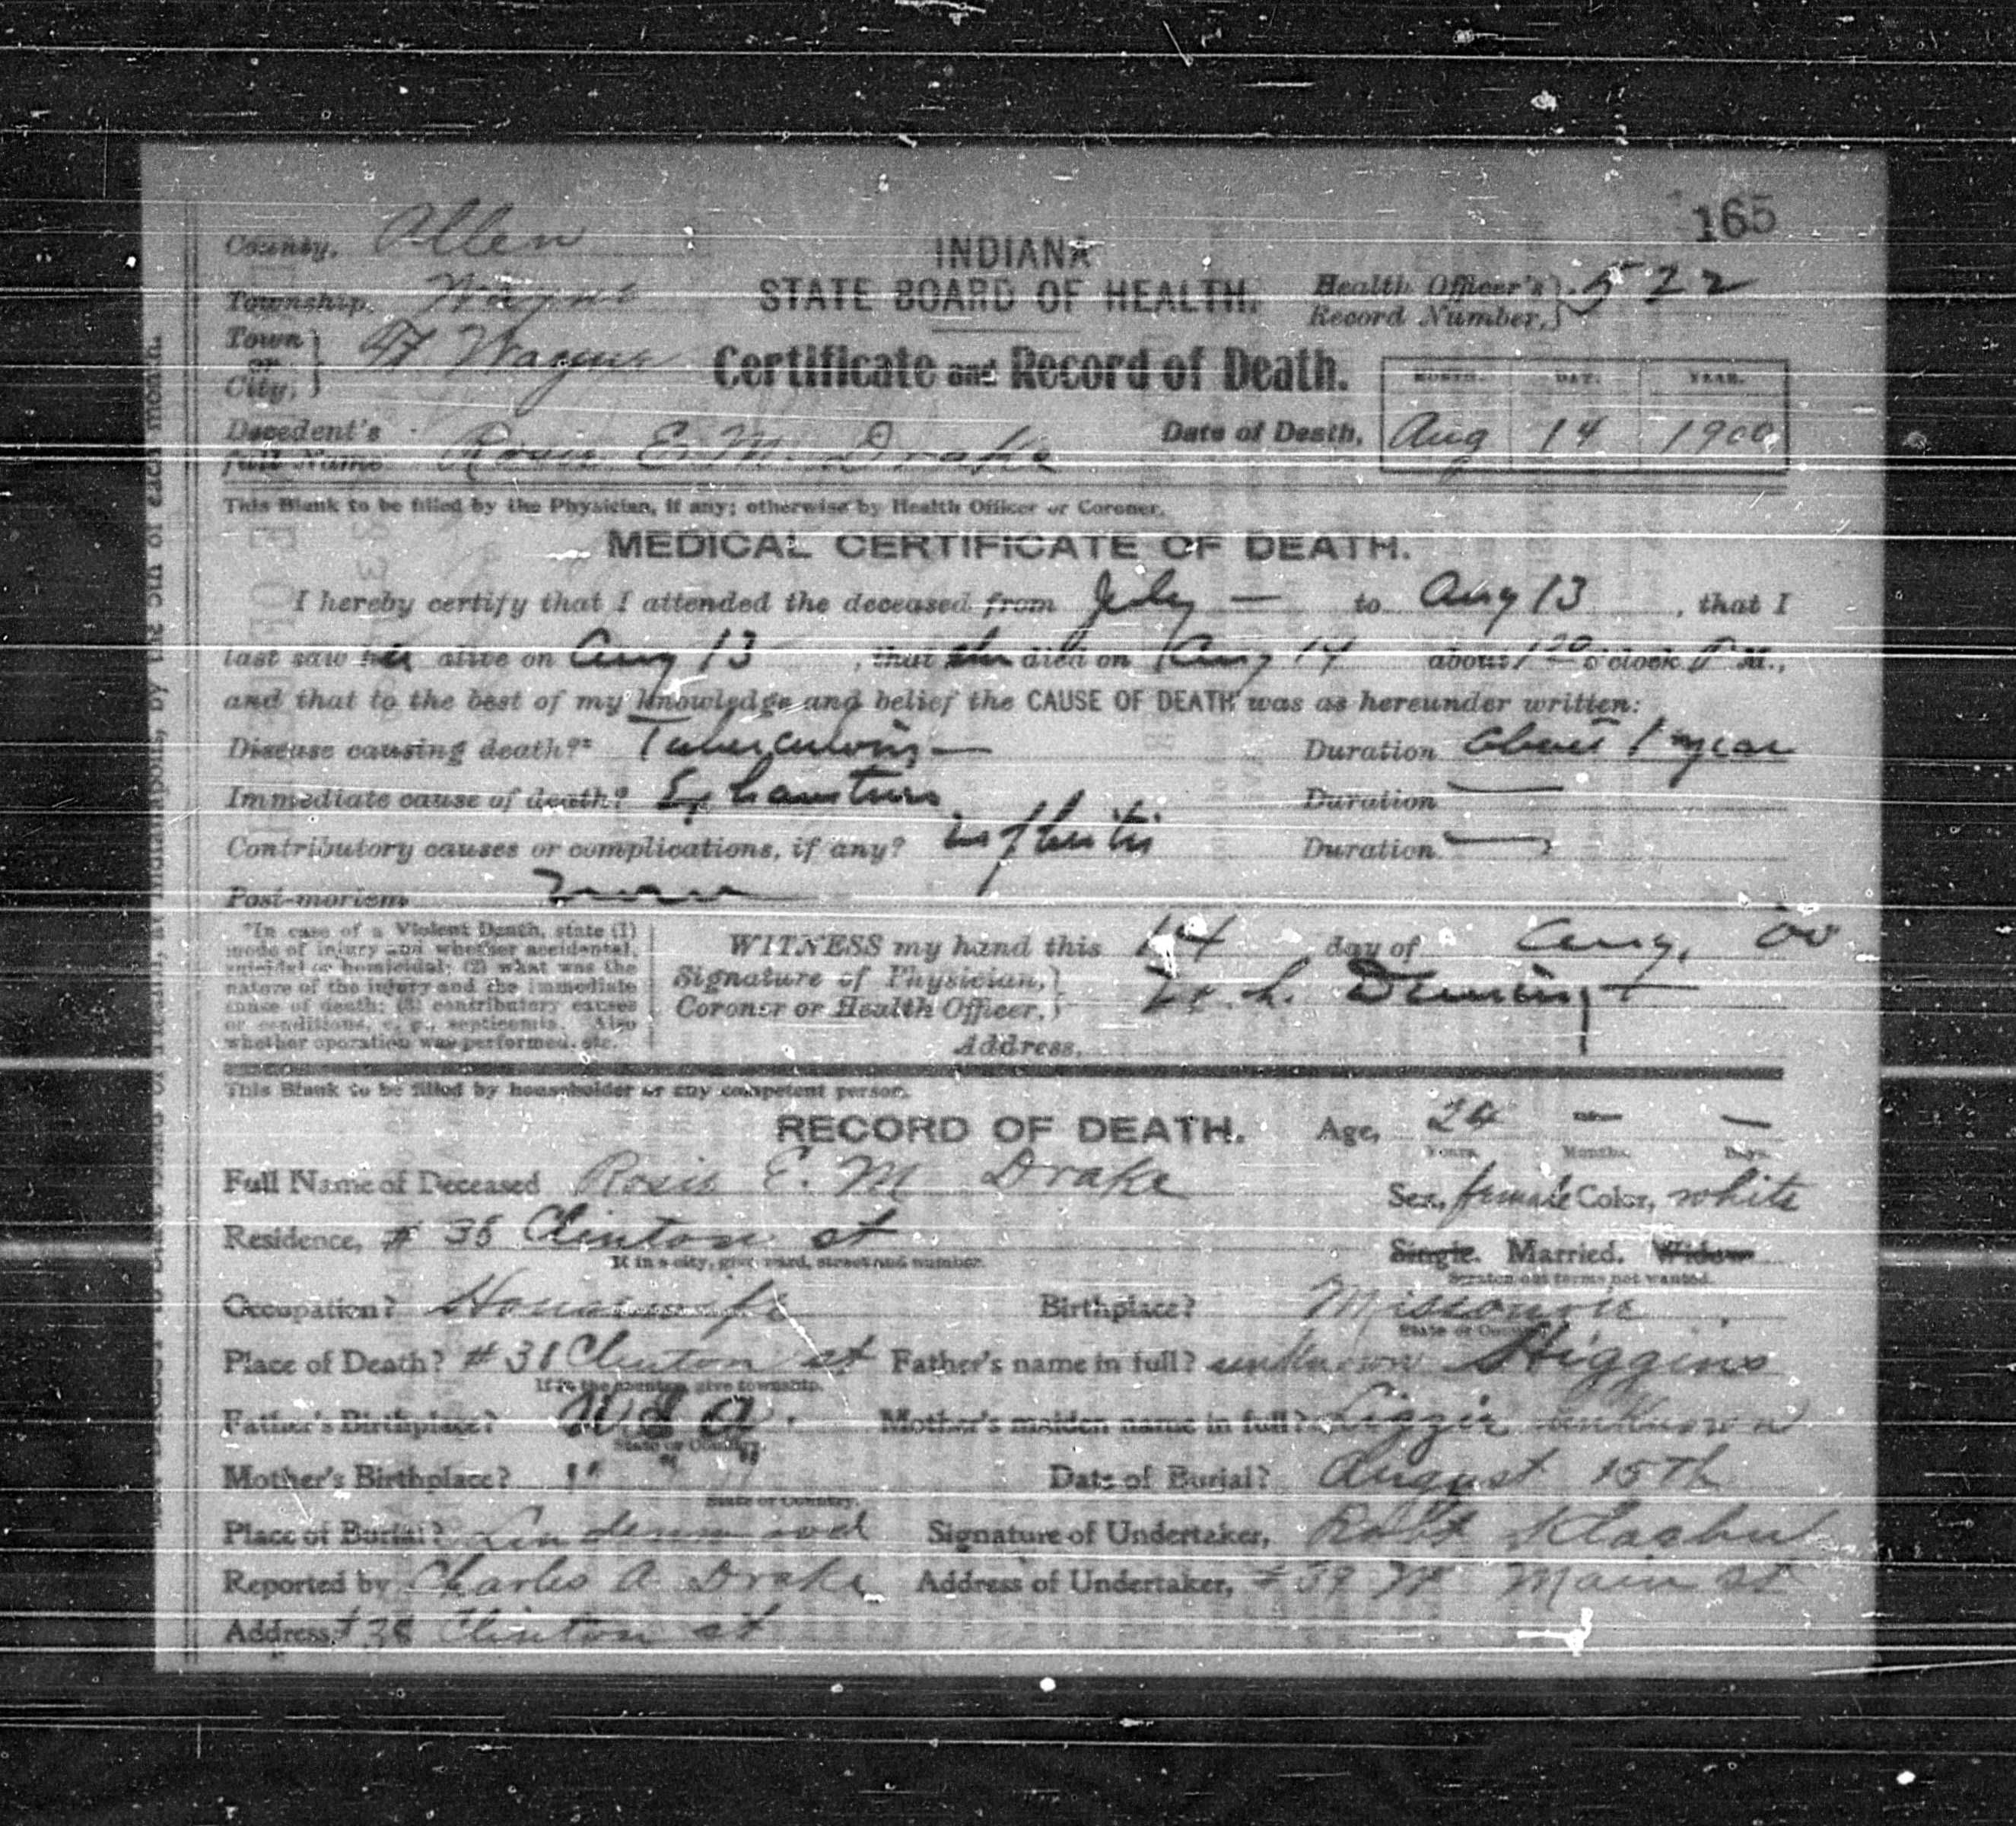 165
County, Allen
INDIANA
Township, Wayne
STATE BOARD OF HEALTH.
Health Officer's Record Number, 522
Town or City, Ft Wayne
Certificate and Record of Death.
MONTH. DAY. YEAR.
Decedent's full Name Rosie E. M. Drake
Date of Death, Aug 14 1900
This Blank to be filled by the Physician, if any; otherwise by Health Officer or Coroner.
MEDICAL CERTIFICATE OF DEATH.
I hereby certify that I attended the deceased from July — to Aug 13, that I
last saw her alive on Aug 13, that she died on Aug 14 about 1 o'clock P M.,
and that to the best of my knowledge and belief the CAUSE OF DEATH was as hereunder written:
Disease causing death?* Tuberculosis — Duration about 1 year
Immediate cause of death? Exhaustion Duration —
Contributory causes or complications, if any? nephritis Duration —
Post-mortem
*In case of a Violent Death, state (1)
mode of injury and whether accidental,
suicidal or homicidal; (2) what was the
nature of the injury and the immediate
cause of death; (3) contributory causes
or conditions, e. g., septicemia. Also
whether operation was performed, etc.
WITNESS my hand this 14 day of Aug. 00
Signature of Physician,
Coroner or Health Officer,
Address,
This Blank to be filled by householder or any competent person.
RECORD OF DEATH. Age, 24 — —
Years, Months, Days.
Full Name of Deceased Rosie E. M Drake
Sex, female Color, white
Residence, # 38 Clinton st
If in a city, give ward, street and number.
Single. Married. Widow
Scratch out terms not wanted.
Occupation? Housewife Birthplace? Missourie
State or Country
Place of Death? # 38 Clinton st Father's name in full? unknown Higgins
If in the country, give township.
Father's Birthplace? U S A. Mother's maiden name in full? Lizzie unknown
State or Country.
Mother's Birthplace? " " " Date of Burial? August 15th
State or Country.
Place of Burial? Lindenwood Signature of Undertaker, Robt Klaehn
Reported by Charles A Drake Address of Undertaker, # 39 W Main st
Address, # 38 Clinton st